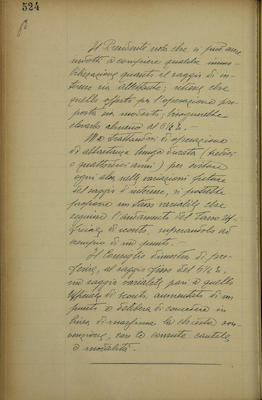 524
Il Presidente nota che si può aver
indotti a compiere qualche immo-
bilizzazione quando il saggio di in-
teresse sia allettante; ritiene che
quello offerto per l'operazione pro-
posta sia modesto; bisognerebbe
elevarlo almeno al 6½%.
Ma trattandosi di operazione
di abbastanza lunga durata (tredici
o quattordici anni) per ovviare
ogni alea nelle variazioni future
del saggio d'interesse, si potrebbe
proporre un tasso variabile che
seguisse l'andamento del Tasso Uf-
ficiale di sconto, superandolo ad
esempio di un punto.
Il Consiglio dimostra di pre-
ferire, al saggio fisso del 6½%,
un saggio variabile pari a quello
Ufficiale di sconto, aumentato di un
punto e delibera di concedere in
linea di massima la chiesta sov-
venzione, con le consuete cautele
e modalità.